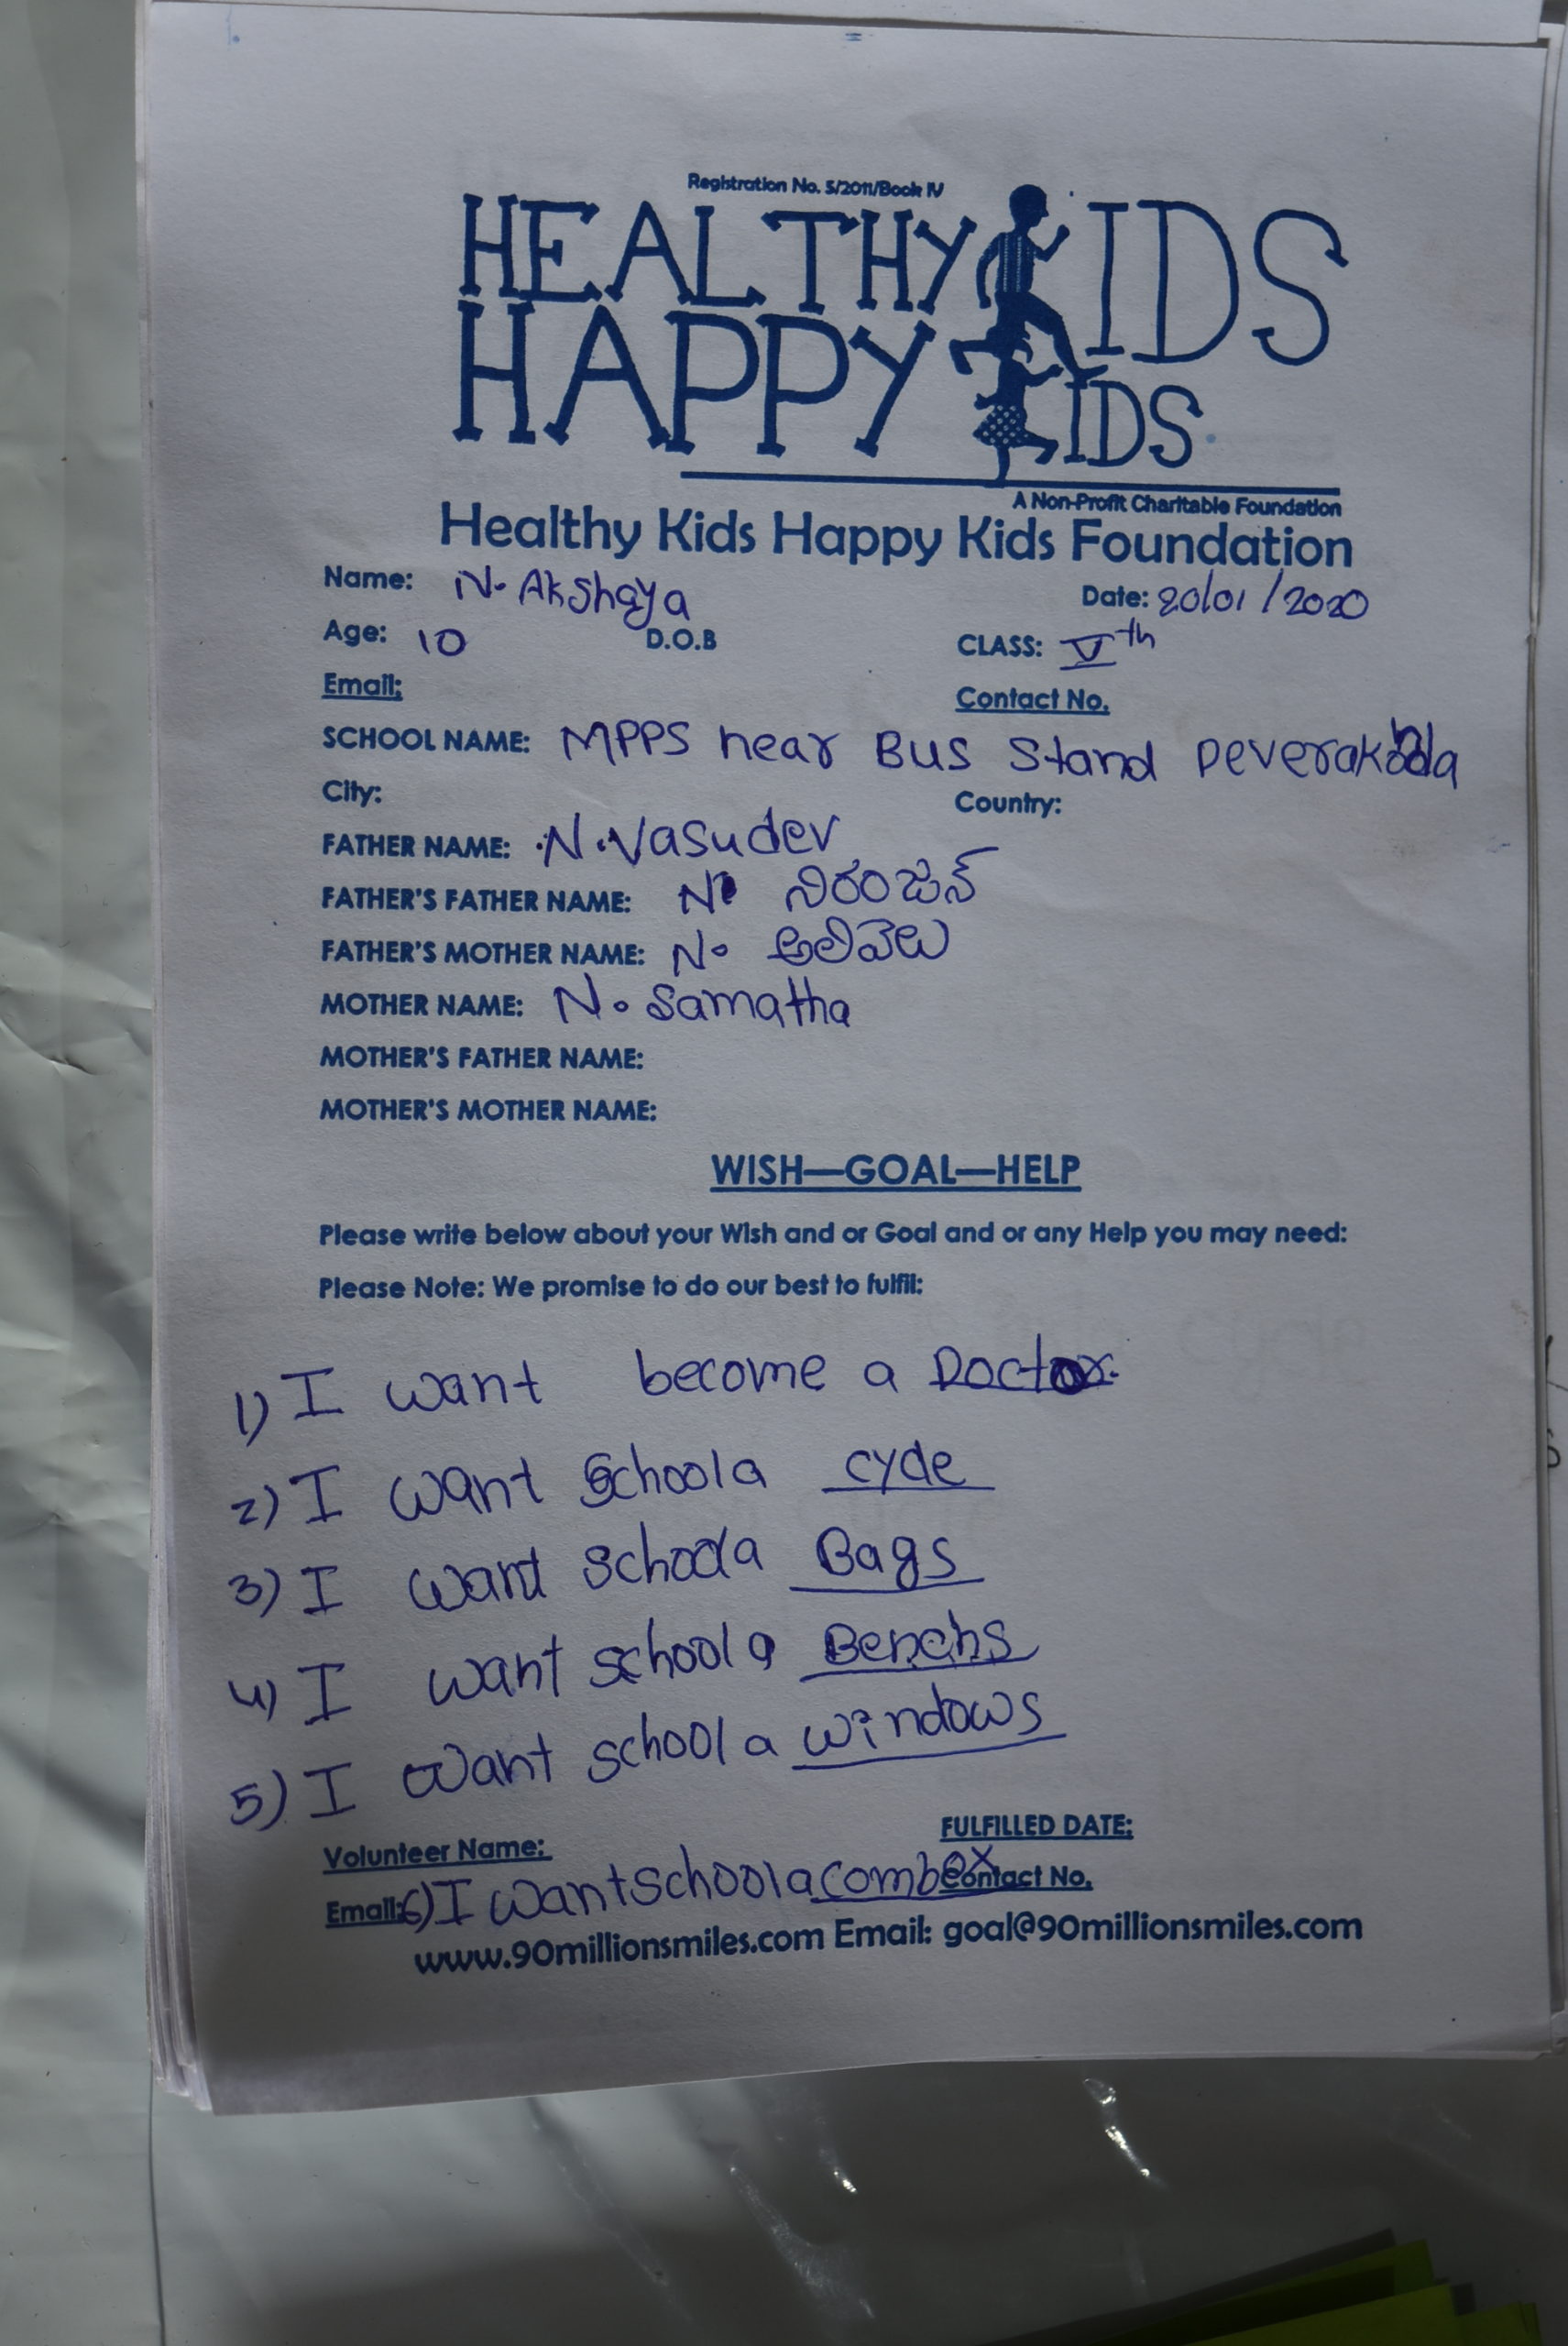 Registration No. 5/2011/Book IV
HEALTHY KIDS
HAPPY KIDS
A Non-Profit Charitable Foundation
Healthy Kids Happy Kids Foundation
Name: N. Akshaya Date: 20/01/2020
Age: 10 D.O.B CLASS: Vth
Email: Contact No.
SCHOOL NAME: MPPS near Bus Stand Deverakonda
City: Country:
FATHER NAME: N. Vasudev
FATHER'S FATHER NAME: N. నిరంజన్
FATHER'S MOTHER NAME: N. అలివేలు
MOTHER NAME: N. Samatha
MOTHER'S FATHER NAME:
MOTHER'S MOTHER NAME:
WISH—GOAL—HELP
Please write below about your Wish and or Goal and or any Help you may need:
Please Note: We promise to do our best to fulfil:
1) I want become a Doctor.
2) I want School a cycle
3) I want school a Bags
4) I want school a Benchs
5) I want school a windows
FULFILLED DATE:
Volunteer Name:
Contact No.
Email: 6) I want school a combex
www.90millionsmiles.com Email: goal@90millionsmiles.com